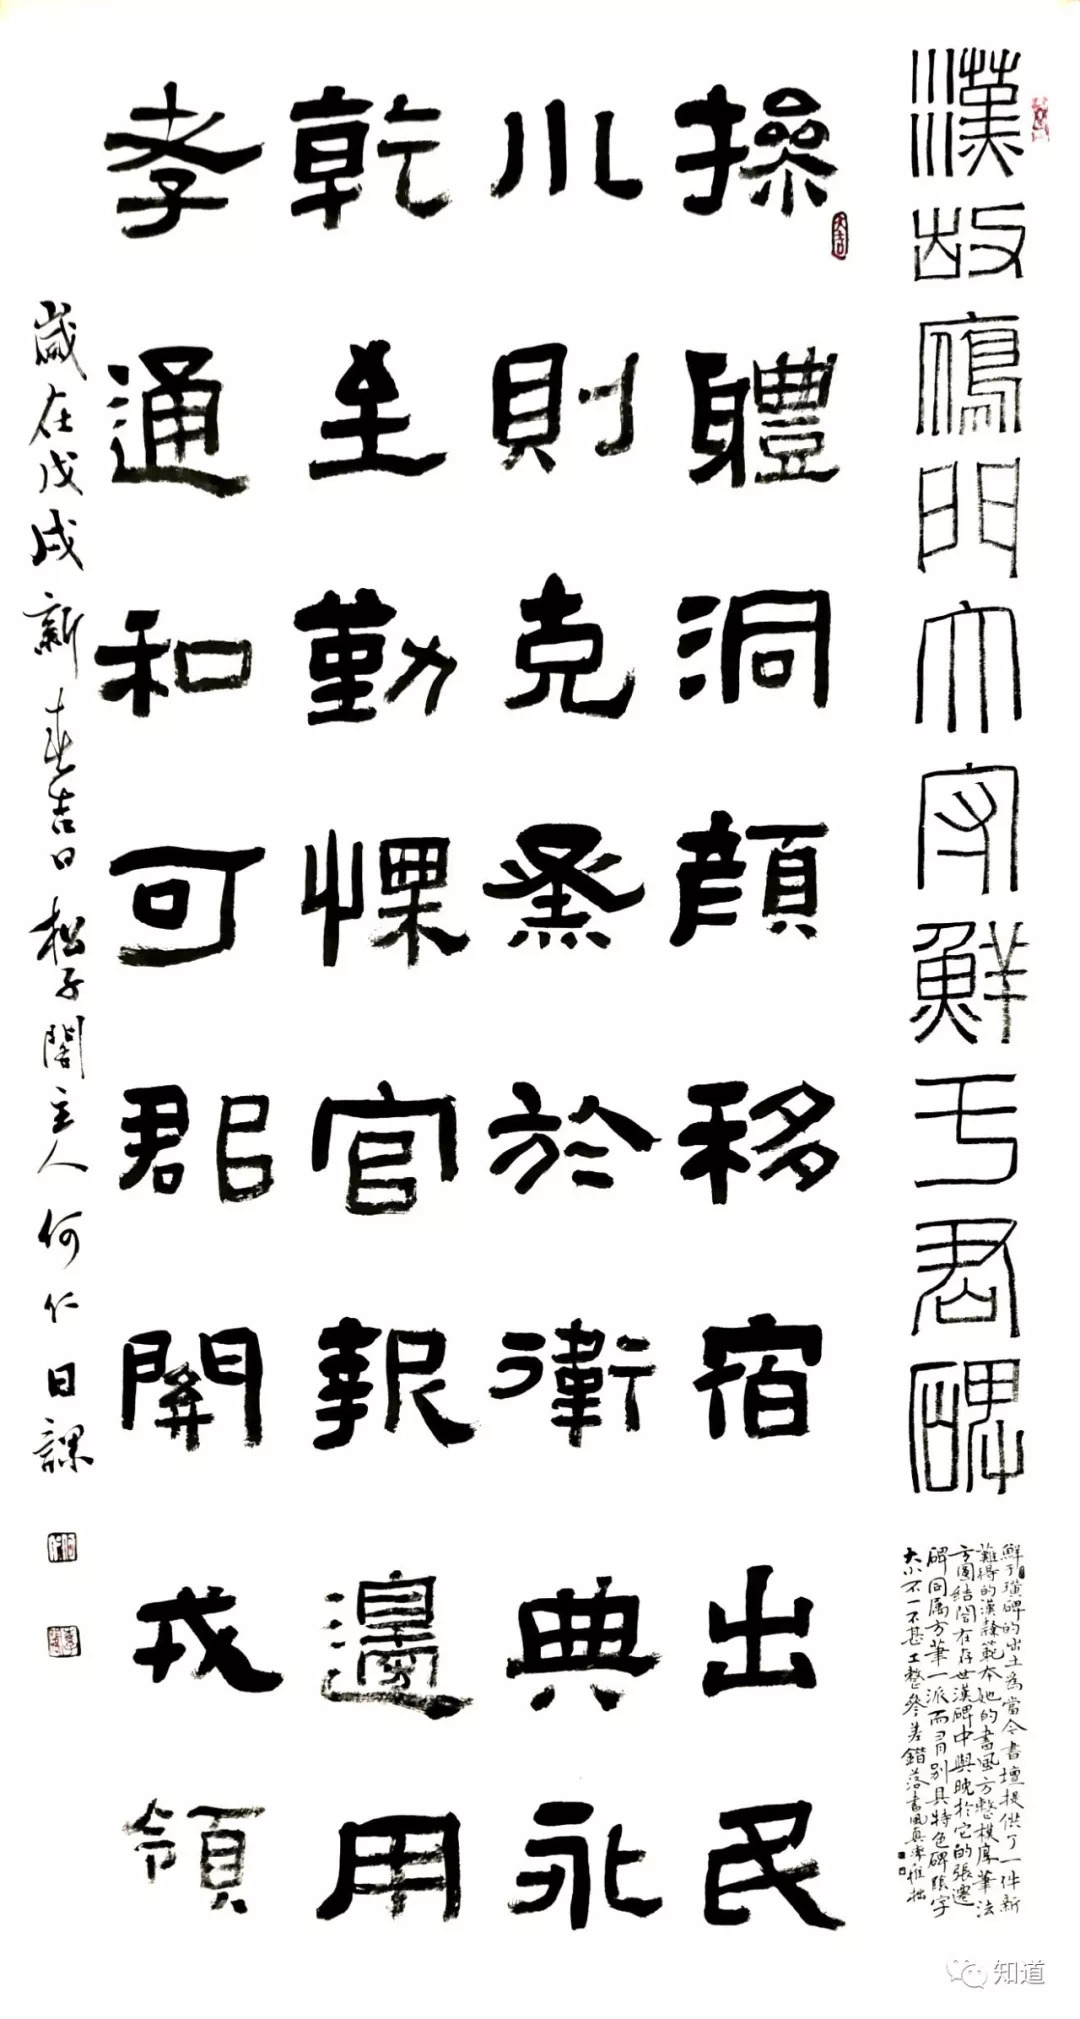 漢故鴈門大守鮮于君碑
鮮于璜碑的出土為當今書壇提供了一件新
難得的漢隸範本她的書風方整樸厚筆法
方圓結閤在存世漢碑中與晚於它的張遷
碑同屬方筆一派而別具特色碑陰字
大小不一不甚工整參差錯落書風真率雅拙
操軆洞顏移宿出民
小則克烝於衛典永
乾至勤慄官報邊用
孝通和可郡開戎領
歲在戊戌新春吉日松子閣主人何仁日課
大吉
知道